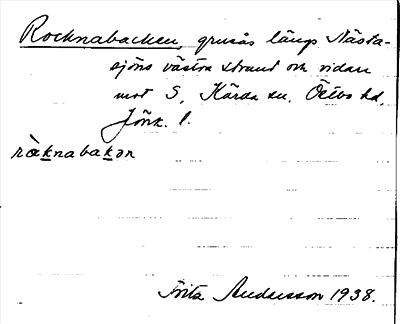 Rocknabacken, grusås längs Nästa-
sjöns västra strand och vidare
mot S, Kärda sn. Östbo hd,
Jönk. l.
ràknabakən
Frita Andersson 1938.